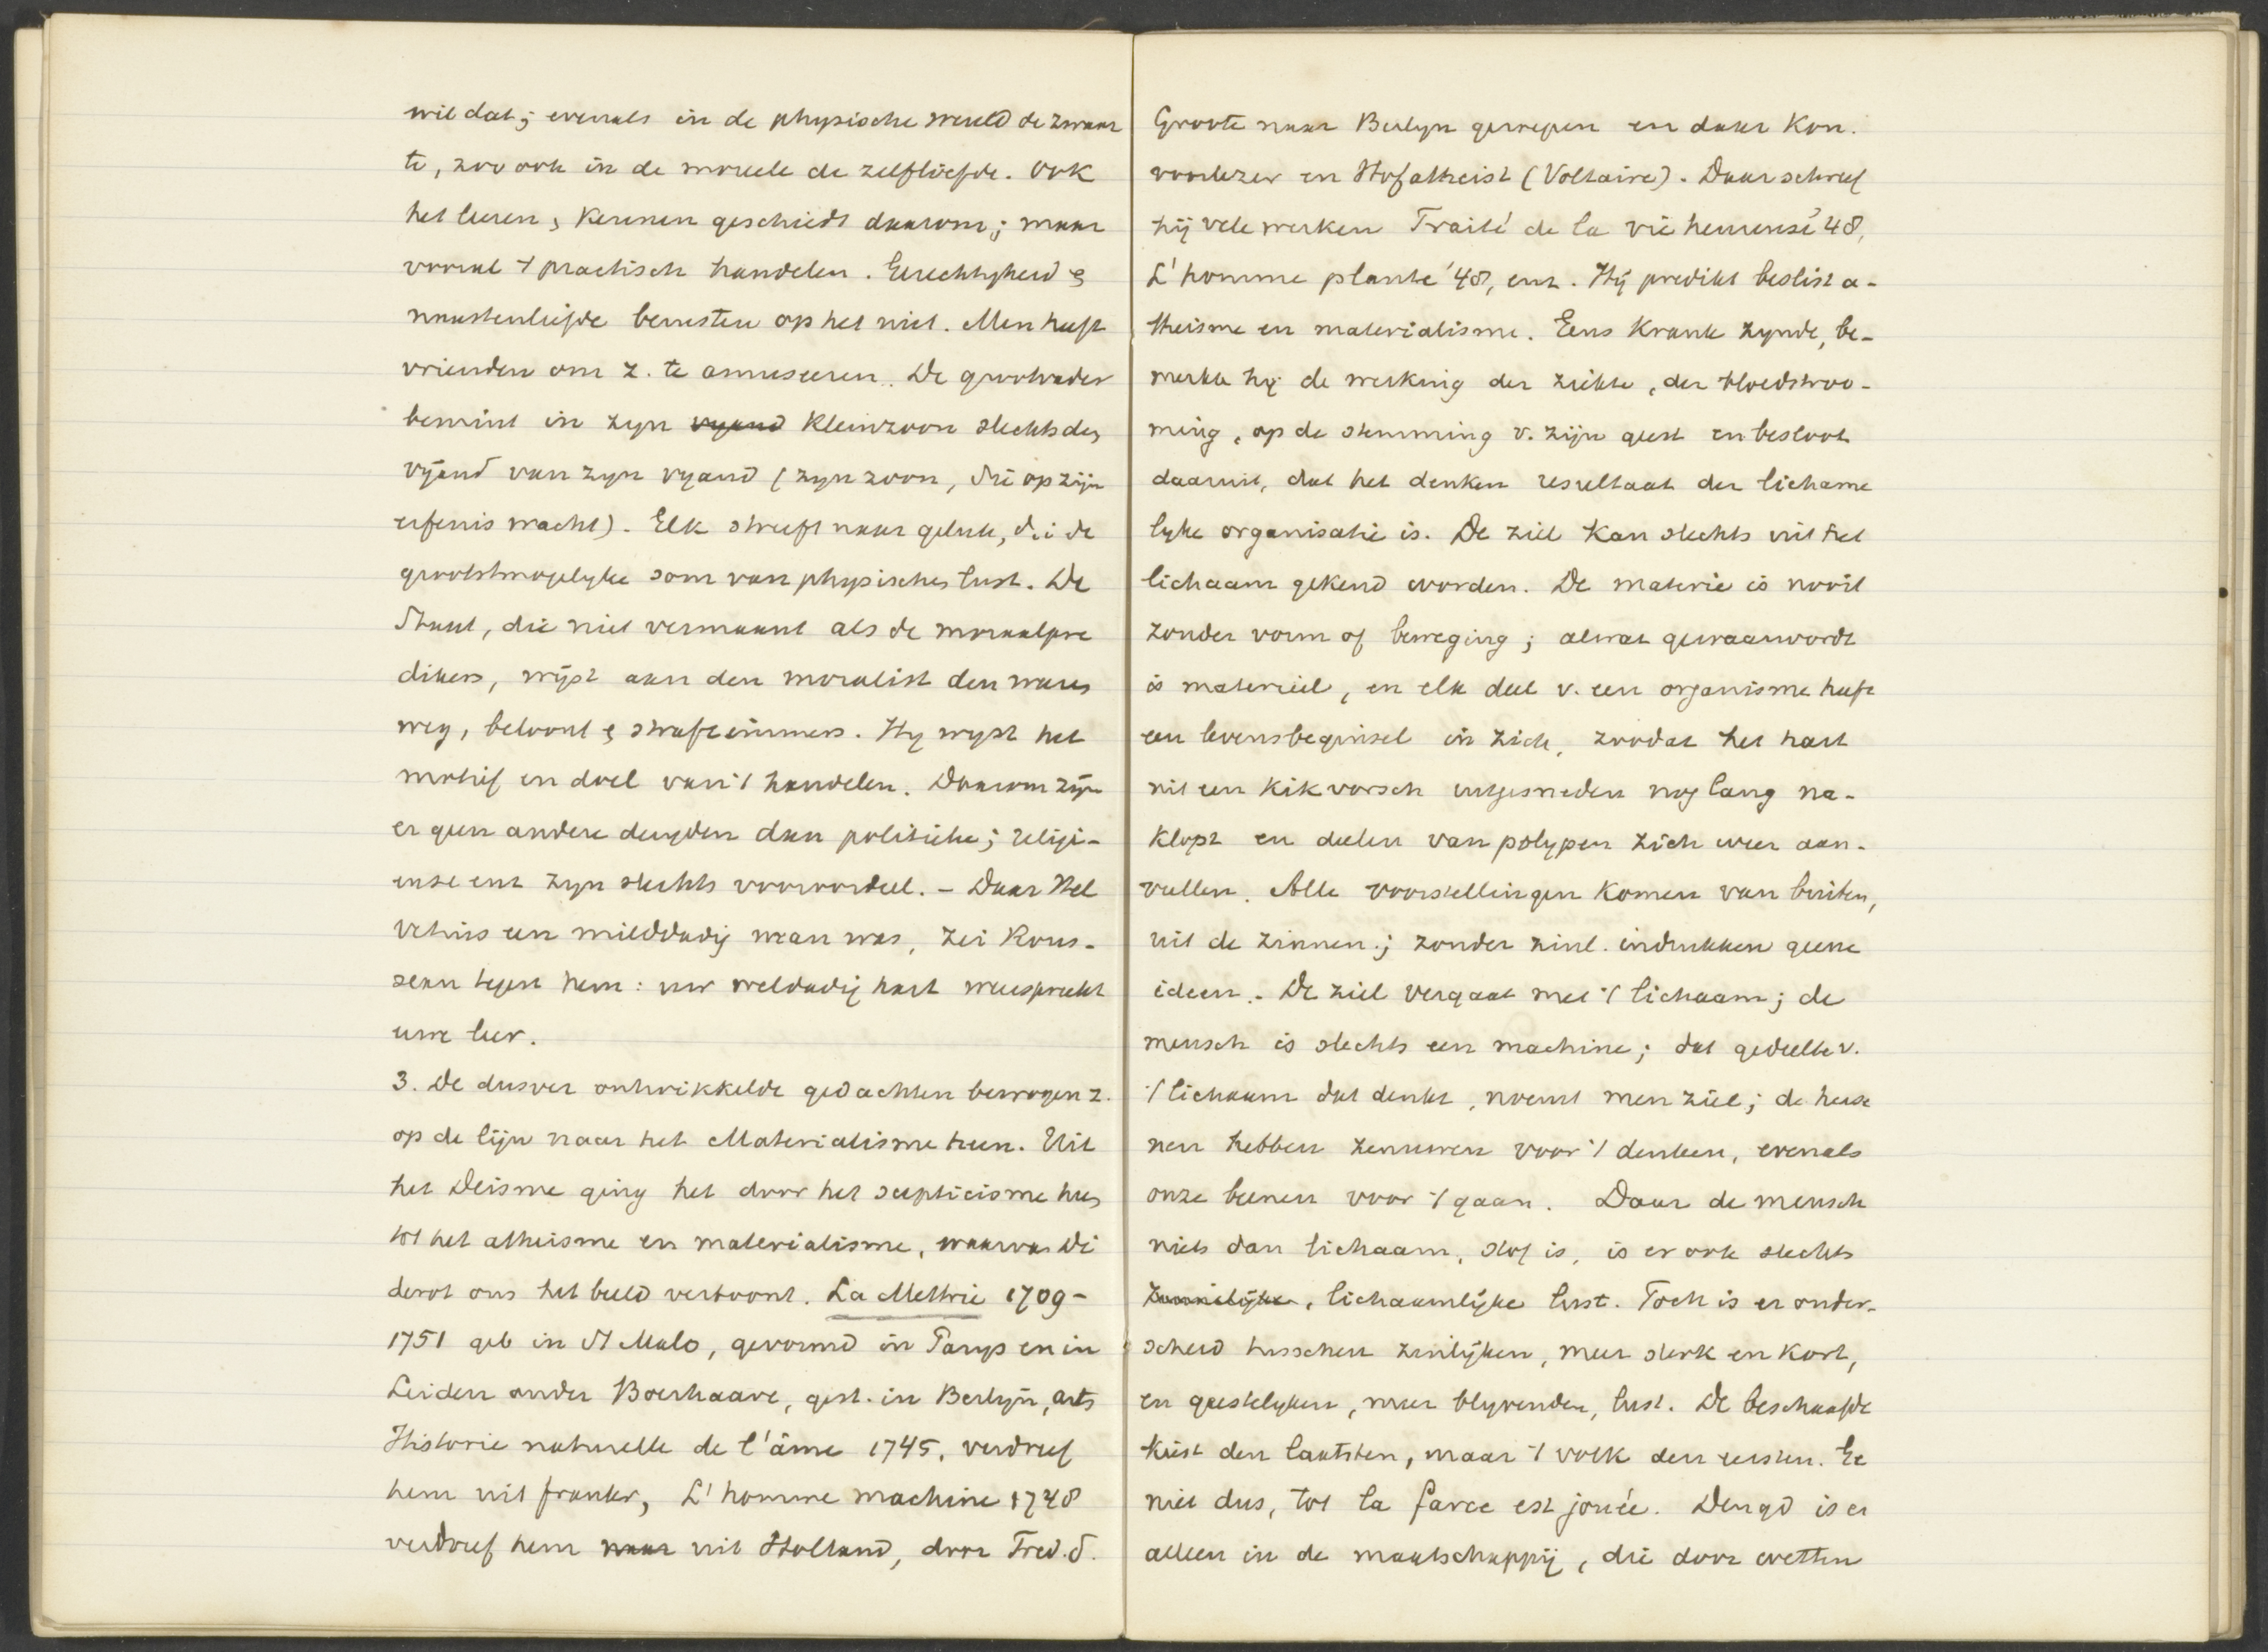 wil dat; evenals in de physische wereld de zwaar
te, zoo ook in de moreele de zelfliefde. Ook
het leeren, kennen geschiedt daarom; maar
vooral 't practisch handelen. Gerechtigheid &
naastenliefde berusten op het niet. Men heeft
vrienden om z. te amuseeren. De grootvader
bemint in zyn vyand kleinzoon slechts den
vijand van zyn vyand (zyn zoon, die op zijn
erfenis wacht). Elk streeft naar geluk, d.i. de
grootstmogelyke som van physischen lust. De
Staat, die niet vermaant als de moraalpre
dikers, wijst aan den moralist den waren
weg, beloont & straft immers. Hy wyst het
motief en doel van 't handelen. Daarom zijn
er geen andere deugden dan politieke; religi-
euse enz zyn slechts vooroordeel. - Daar Hel
vetius een milddadig man was, zei Rous-
seau tegen hem: uw weldadig hart weerspreekt
uwe leer.
3. De dusver ontwikkelde gedachten bewogen z.
op de lijn naar het Materialisme heen. Uit
het Deisme ging het door het scepticisme heen
tot het atheisme en materialisme, waarvan Di
derot ons het beeld vertoont. La Mettrie 1709-
1751 geb in St Malo, gevormd in Parys en in
Leiden onder Boerhaave, gest. in Berlyn, arts
Historie naturelle de l'âme 1745, verdreef
hem uit frankr, L'homme machine 1748
verdreef hem naar uit Holland, door Fred. d.
Groote naar Berlyn geroepen en daar Kon.
voorlezer en Hofatheist (Voltaire). Daar schreef
hij vele werken Traité de la vie heureuse '48,
L'homme plante '48, enz. Hij predikt beslist a-
theisme en materialisme. Eens krank zynde, be-
merkte hy de werking der ziekte, der bloedstroo-
ming, op de stemming v. zijn geest en besloot
daaruit, dat het denken resultaat der lichame
lyke organisatie is. De ziel kan slechts uit het
lichaam gekend worden. De materie is nooit
zonder vorm of beweging; alwat gewaarwordt
is materieel, en elk deel v. een organisme heeft
een levensbeginsel in zich, zoodat het hart
uit een kikvorsch uitgesneden nog lang na-
klopt en deelen van polypen zich weer aan-
vullen. Alle voorstellingen komen van buiten,
uit de zinnen; zonder zinl. indrukken geene
ideen. - De ziel vergaat met 't lichaam; de
mensch is slechts een machine; dat gedeelte v.
't lichaam dat denkt, noemt men ziel; de herse
nen hebben zenuwen voor 't denken, evenals
onze beenen voor 't gaan. Daar de mensch
niets dan lichaam, stof is, is er ook slechts
zinnelijke, lichaamlijke lust. Toch is er onder-
scheid tusschen zinlijken, meer sterk en kort,
en geestelyken, meer blyvenden, lust. De beschaafde
kiest den laatsten, maar 't volk den eersten. Ge
niet dus, tot la farce est jouée. Deugd is er
alleen in de maatschappij, die door wetten